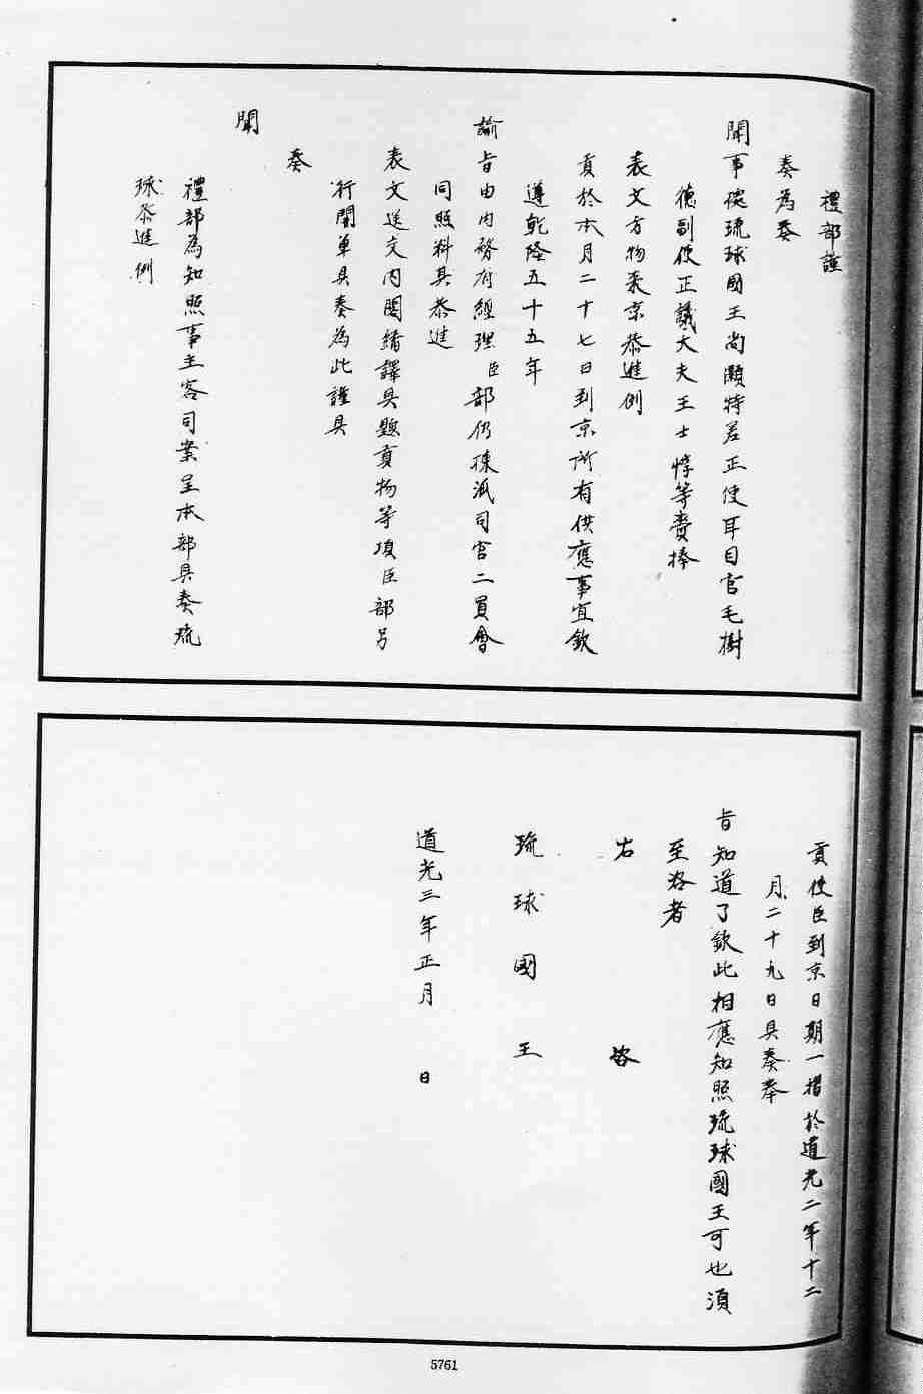 禮部謹
奏為奏
聞事碟琉球國王尚灝特差正使耳目官毛樹
德副使正議大夫王士惇等賫捧
表文方物來京恭進例
貢於本月二十七日到京所有供應事宜欽
遵乾隆五十五年
諭旨由內務府經理臣部仍揀派司官二員會
同照料其恭進
表文送交內閣繙譯具題貢物等項臣部另
行開單具奏為此謹具
奏
聞
禮部為知照事主客司案呈本部具奏琉
球恭進例
貢使臣到京日期一摺於道光二年十二
月二十九日具奏奉
旨知道了欽此相應知照琉球國王可也須
至咨者
右咨
琉球國王
道光三年正月 日
5761